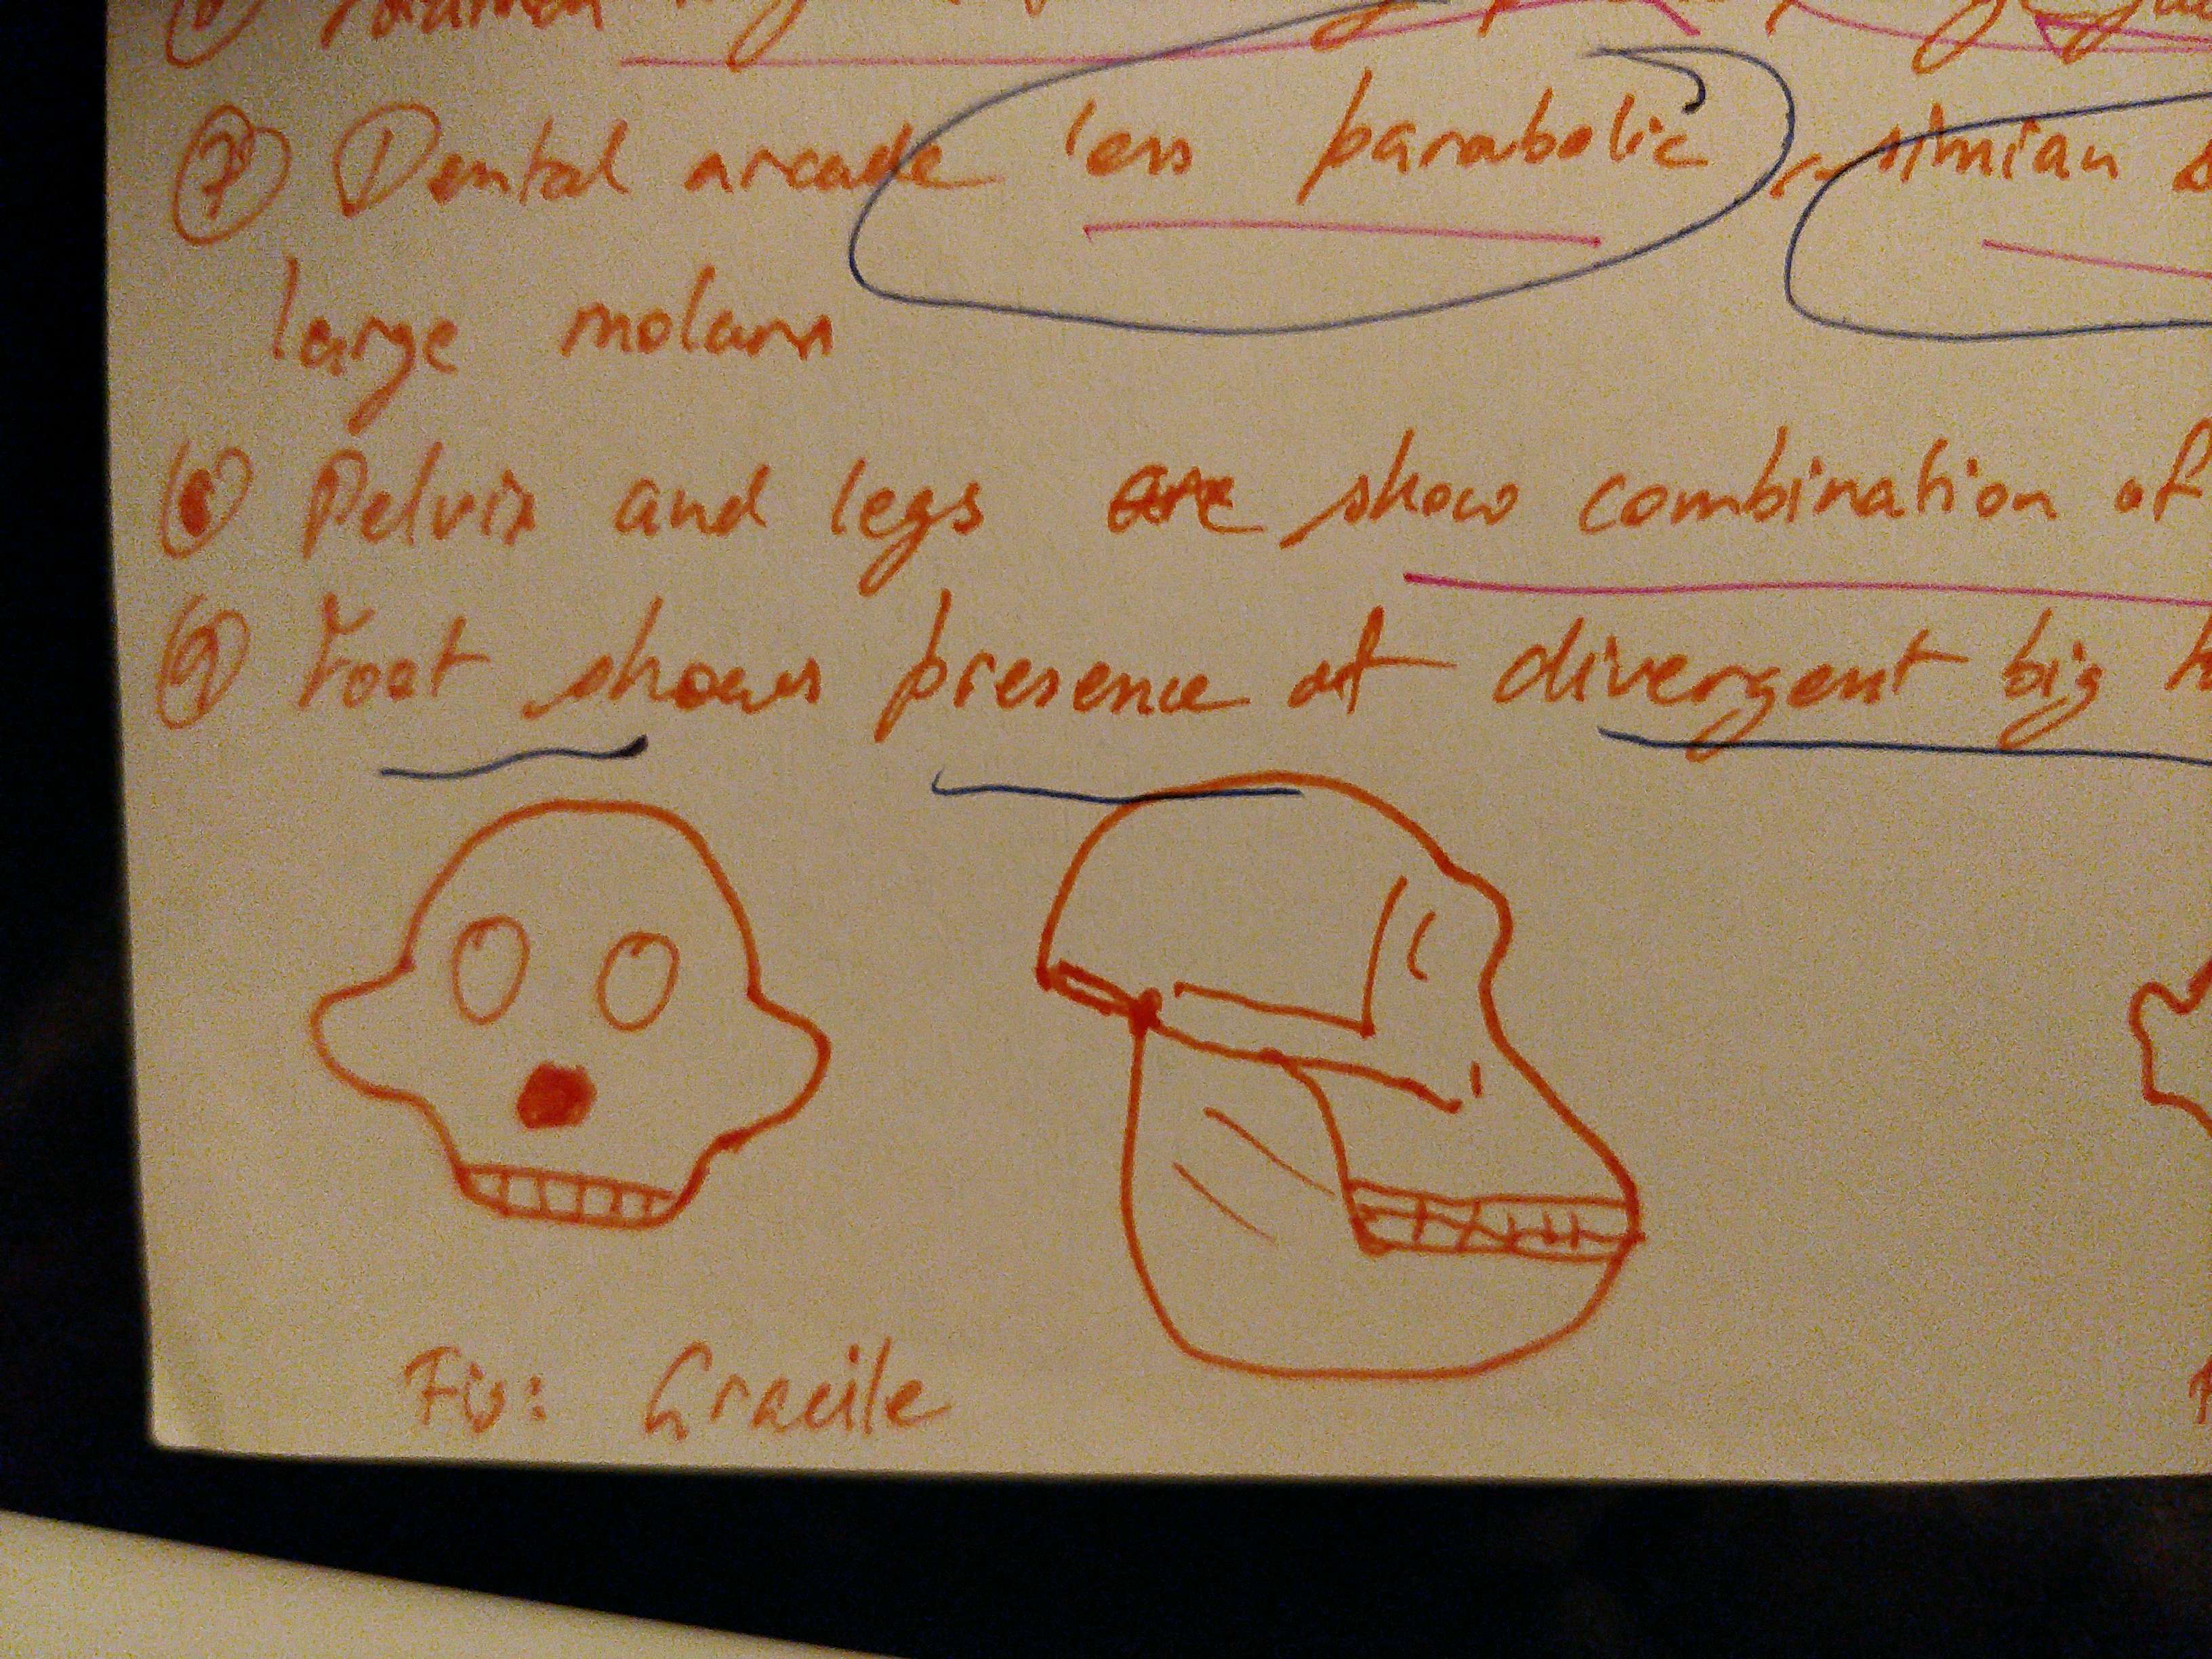 ⑦ Dental arcade less parabolic, simian
large molars
⑧ Pelvis and legs are show combination of
⑨ Foot shows presence of divergent big
Fig: Gracile